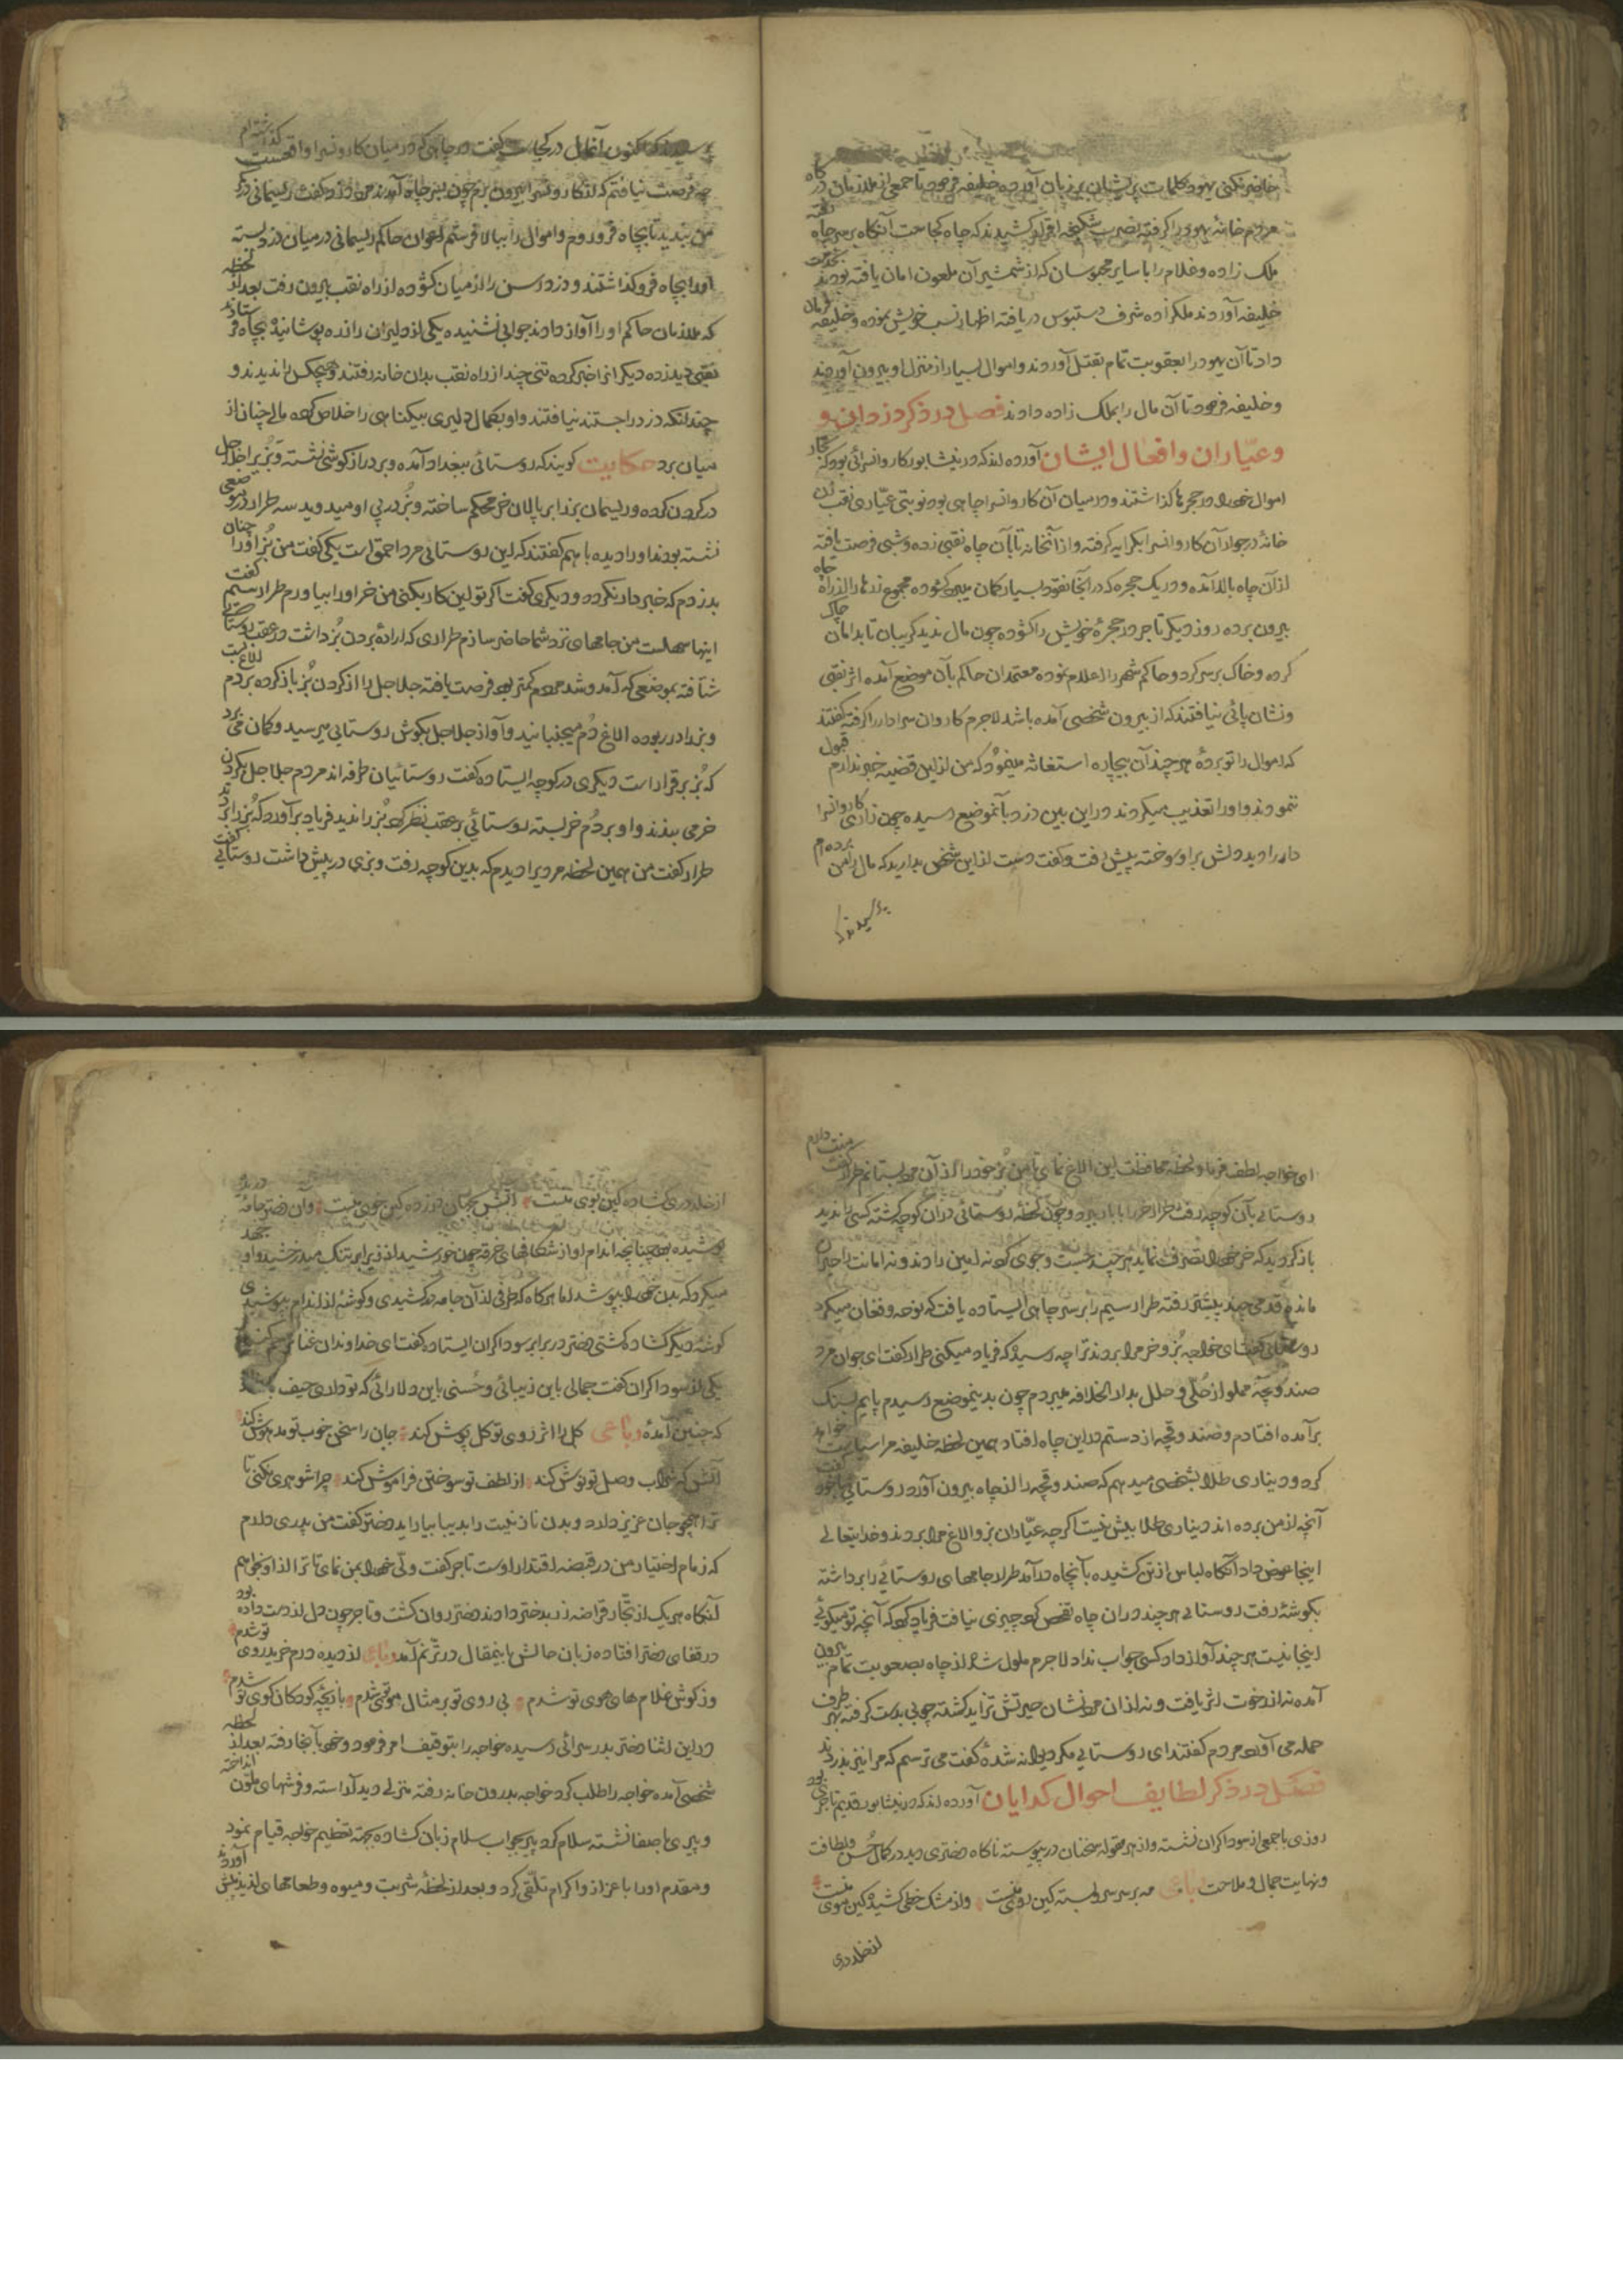 حاضر نکنی یهود کلمات پریشان بر زبان آورده خلیفه فرمود تا جمعی از ملازمان در کاه
مردم خانهٔ یهود را گرفته بضرب شکنجه اقرار کشیدند که چاه کجاست آنگاه بر سر چاه رفته
ملک زاده و غلام را با سایر محبوسان که از شمشیر آن ملعون امان یافته بودند بخدمت
خلیفه آوردند ملکزاده شرف دستبوس دریافته اظهار نسب خویش نموده و خلیفه فرمان
داد تا آن یهود را بعقوبت تمام بقتل آوردند و اموال بسیار از منزل او بیرون آوردند
و خلیفه فرمود تا آن مال را بملک زاده دادند فصل در ذکر دزدان و
و عیّاران و افعال ایشان آورده اند که در نیشابور کاروانسرائی بود که تجار
اموال خود در حجرها گذاشتند و در میان آن کاروانسرا چاهی بود نوبتی عیّاری نقب زن
خانهٔ در جوار آن کاروانسرا بکرایه گرفته و از آنخانه تا بآن چاه نقبی زده و شبی فرصت یافته
از آن چاه بالا آمده و در یک حجره که در آنجا نقود بسیار کمان میبرد کشوده مجموع زرها را از راه چاه
بیرون برده روز دیگر تاجر در حجرهٔ خویش را کشوده چون مال ندید گریبان تا بدامان چاک
کرده و خاک بر سر کرد و حاکم شهر را اعلام نموده معتمدان حاکم بآن موضع آمده اثر نقبی
و نشان پائی نیافتند که از بیرون شخصی آمده باشد لاجرم کاروان سرادار را گرفته گفتند
که اموال را تو بردهٔ هر چند آن بیچاره استغاثه مینمود که من از این قضیه خبر ندارم قبول
ننمودند و او را تعذیب میکردند در این بین دزد بآنموضع رسیده چون زاری کاروانسرا
دار را دید دلش بر او سوخته پیش رفت و گفت دست از این شخص بدارید که مال را من برده ام
پرسیدند که
پرسیدند که اکنون آنمال در کجاست گفت در چاهی که در میان کاروانسرا واقعست گذاشته ام
چه فرصت نیافتم که از کاروانسرا بیرون برم چون بسر چاه آمدند دزد گفت ریسمانی در کمر
من بندید تا بچاه فرو روم و اموال را ببالا فرستم اعوان حاکم ریسمانی در میان دزد بسته
او را بچاه فرو گذاشتند و دزد رسن را از میان کشوده از راه نقب بیرون رفت بعد از لحظه
که ملازمان حاکم او را آواز دادند جوابی نشنیده یکی از دلیران را زره پوشانیده بچاه فرستاد
نقبی دید زده دیگران را خبر کرده تنی چند از راه نقب بدان خانه رفتند و هیچکس را ندیدند و
چندانکه دزد را جستند نیافتند و او بکمال دلیری بیکناهی را خلاص کرده مالی چنان از
میان برد حکایت کویند که روستائی ببغداد آمده و بر دراز کوشی نشسته و بزیرا جلاجل
در گردن کرده و ریسمان بز را بر پالان خر محکم ساخته و بز در پی او میدوید سه طرار در موضعی
نشسته بودند او را دیده با هم گفتند که این روستائی مرد احمق است یکی گفت من بز او را چنان
بدزدم که خبردار نگردد و دیگری گفت اگر تو این کار بکنی من خر او را بیاورم طرار سیم گفت
اینها سهلست من جامهای نزد شما حاضر سازم طراری که ارادهٔ بردن بز داشت در عقب روستائی
شتافته بموضعی که آمد و شد مردم کمتر بود فرصت یافته جلاجل را از کردن بز باز کرده بر دم الاغ بست
و بز را در ربوده الاغ دم میجنبانید و آواز جلاجل بکوش روستائی میرسید و کمان می برد
که بز برقرار است دیگری در کوچه ایستاده گفت روستائیان طرفه اند مردم جلاجل بگردن
خر می بندند و او بر دم خر بسته روستائی در عقب نظر کرد بز را ندید فریاد برآورد که بز را بردند
طرار گفت من همین لحظه مردیرا دیدم که بدین کوچه رفت و بزی در پیش داشت روستائی گفت
ای خواجه لطف فرما و لحظه محافظت این الاغ نمای تا من بز خود را از آن مرد بستانم طرار گفت منت دارم
روستائی بآن کوچه رفت طرار خر را بباد ببرد و چون لحظهٔ روستائی در آن کوچه گشته کسی را ندید
باز گردید که خر خود را تصرف نماید هر چند جست و جوی کرد نه امین را دید و نه امانت را حیران
مانده قدمی چند پیشتر رفته طرار سیم را بر سر چاهی ایستاده یافت که نوحه و فغان میکرد
روستائی گفت ای خواجه بز و خر مرا بردند ترا چه رسیده که فریاد میکنی طرار گفت ای جوان مرد
صندوقچهٔ مملو از حلی و حلل بدار الخلافه میبردم چون بدینموضع رسیدم پایم بسنگ
برآمده افتادم و صندوقچه از دستم در این چاه افتاد همین لحظه خلیفه مرا سیاست خواهد
کرد و دیناری طلا بشخصی میدهم که صندوقچه را از چاه بیرون آورد روستائی با خود گفت
آنچه از من برده اند دیناری طلا بیش نیست اگر چه عیّاران بز و الاغ مرا بردند و خدایتعالی
اینجا عوض داد آنگاه لباس از تن کشیده بآنچاه درآمد طرار جامهای روستائی را برداشته
بکوشهٔ رفت روستائی هر چند در آن چاه تفحص کرد چیزی نیافت فریاد کرد که آنچه تو میگوئی
اینجا نیست هر چند آواز داد کسی جواب نداد لاجرم ملول شده از چاه بصعوبت تمام بیرون
آمده نه از رخوت اثر یافت و نه از آن مرد نشان حیرتش تزاید گشته چوبی بدست گرفته بهر طرف
حمله می آورد مردم گفتند ای روستائی مکر دیوانه شدهٔ گفت می ترسم که مرا نیز بدزدند
فصل در ذکر لطایف احوال کدایان آورده اند که در نیشابور قدیم تاجری بود
روزی با جمعی از سوداگران نشسته و از هر مقوله سخنان در پیوسته ناکاه دختری دید در کمال حسن و لطافت
و نهایت جمال و ملاحت رباعی مه بر سر سرو بسته کین روی منست و از مشک خطی کشیده کین موی منست
از خلد دری
از خلد دری کشاده کین بوی منست آتش بجهان در زده کین خوی منست و آن دختر جامهٔ
پوشیده بود چنانچه اندام او از شکافهای خرقه چون خورشید از زیر ابر تنک میدرخشید و او جهد
میکرد که بدن خود را بپوشد اما هرکاه که طرفی از آن جامه در کشیدی و کوشهٔ از اندام بپوشیدی
کوشهٔ دیگر کشاده کشتی دختر در برابر سوداگران ایستاده گفت ای خداوندان غنا
یکی از سوداگران گفت جمالی باین زیبائی و حسنی باین دلارائی که تو داری حیف باشد
که چنین آمدهٔ رباعی کل را اثر روی تو کل پوش کند جان را سخن خوب تو مدهوش کند
آتش که شراب وصل تو نوش کند از لطف تو سوختن فراموش کند چرا شوهری نکنی تا
ترا همچو جان عزیز دارد و بدن نازنینت را بدیبا بیاراید دختر گفت من پدری دارم
که زمام اختیار من در قبضه اقتدار اوست تاجر گفت ولی خود را بمن نمای تا ترا از او بخواهم
آنگاه هر یک از تجار قراضه زر بدختر دادند دختر روان کشت و تاجر چون دل از دست داده بود
در قفای دختر افتاده زبان حالش باینمقال در ترنم آمد رباعی از دیده درم خرید روی تو شدم
وز کوش غلام های هوی تو شدم بی روی تو بر مثال موی تو شدم بازیچهٔ کودکان کوی تو شدم
در این اثنا دختر بدر سرائی رسیده خواجه را بتوقیف امر فرمود و خود بآنجا رفته بعد از لحظه
شخصی آمده خواجه را طلب کرد خواجه بدرون خانه رفته منزلی دید آراسته و فرشهای ملوّن انداخته
و پیری باصفا نشسته سلام کرد پیر بجواب سلام زبان کشاده بجهة تعظیم خواجه قیام نمود
و مقدم او را باعزاز و اکرام تلقی کرد و بعد از لحظهٔ شربت و میوه و طعامهای لذیذ پیش آوردند